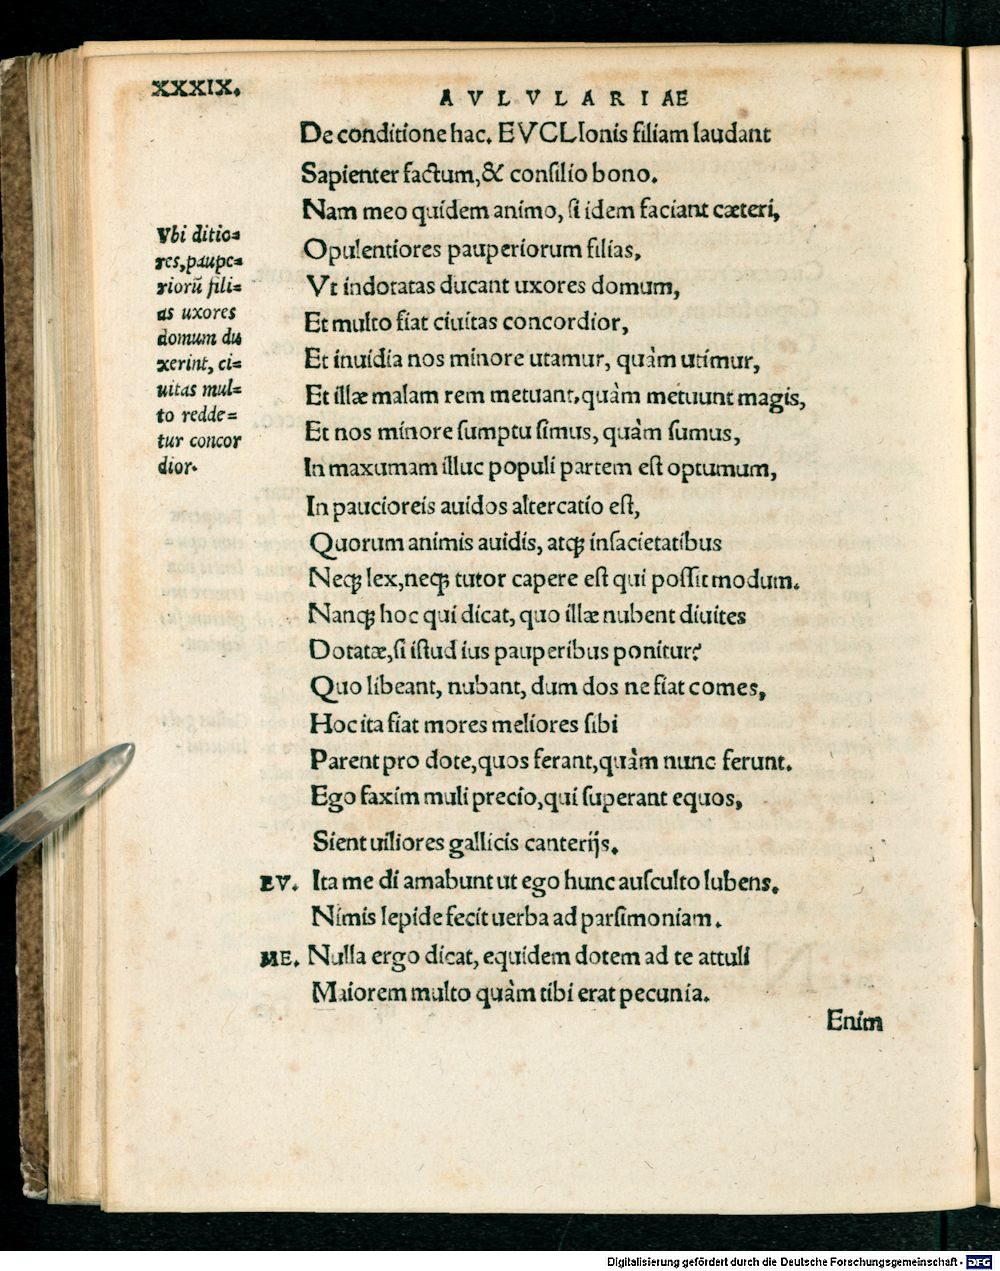 XXXIX.
AVLVLARIAE
De conditione hac. EVCLIonis filiam laudant
Sapienter factum, & consilio bono.
Nam meo quidem animo, si idem faciant cæteri,
Opulentiores pauperiorum filias,
Vt indotatas ducant uxores domum,
Et multo fiat ciuitas concordior,
Et inuidia nos minore utamur, quàm utimur,
Et illæ malam rem metuant, quàm metuunt magis,
Et nos minore sumptu simus, quàm sumus,
In maxumam illuc populi partem est optumum,
In paucioreis auidos altercatio est,
Quorum animis auidis, atq; insacietatibus
Neq; lex, neq; tutor capere est qui possit modum.
Nanq; hoc qui dicat, quo illæ nubent diuites
Dotatæ, si istud ius pauperibus ponitur?
Quo libeant, nubant, dum dos ne fiat comes,
Hoc ita fiat mores meliores sibi
Parent pro dote, quos ferant, quàm nunc ferunt.
Ego faxim muli precio, qui superant equos,
Sient uiliores gallicis canterijs.
EV. Ita me di amabunt ut ego hunc ausculto lubens.
Nimis lepide fecit uerba ad parsimoniam.
ME. Nulla ergo dicat, equidem dotem ad te attuli
Maiorem multo quàm tibi erat pecunia.
Enim
Vbi ditio=
res, paupe=
riorũ fili=
as uxores
domum du
xerint, ci=
uitas mul=
to redde=
tur concor
dior.
Digitalisierung gefördert durch die Deutsche Forschungsgemeinschaft - DFG